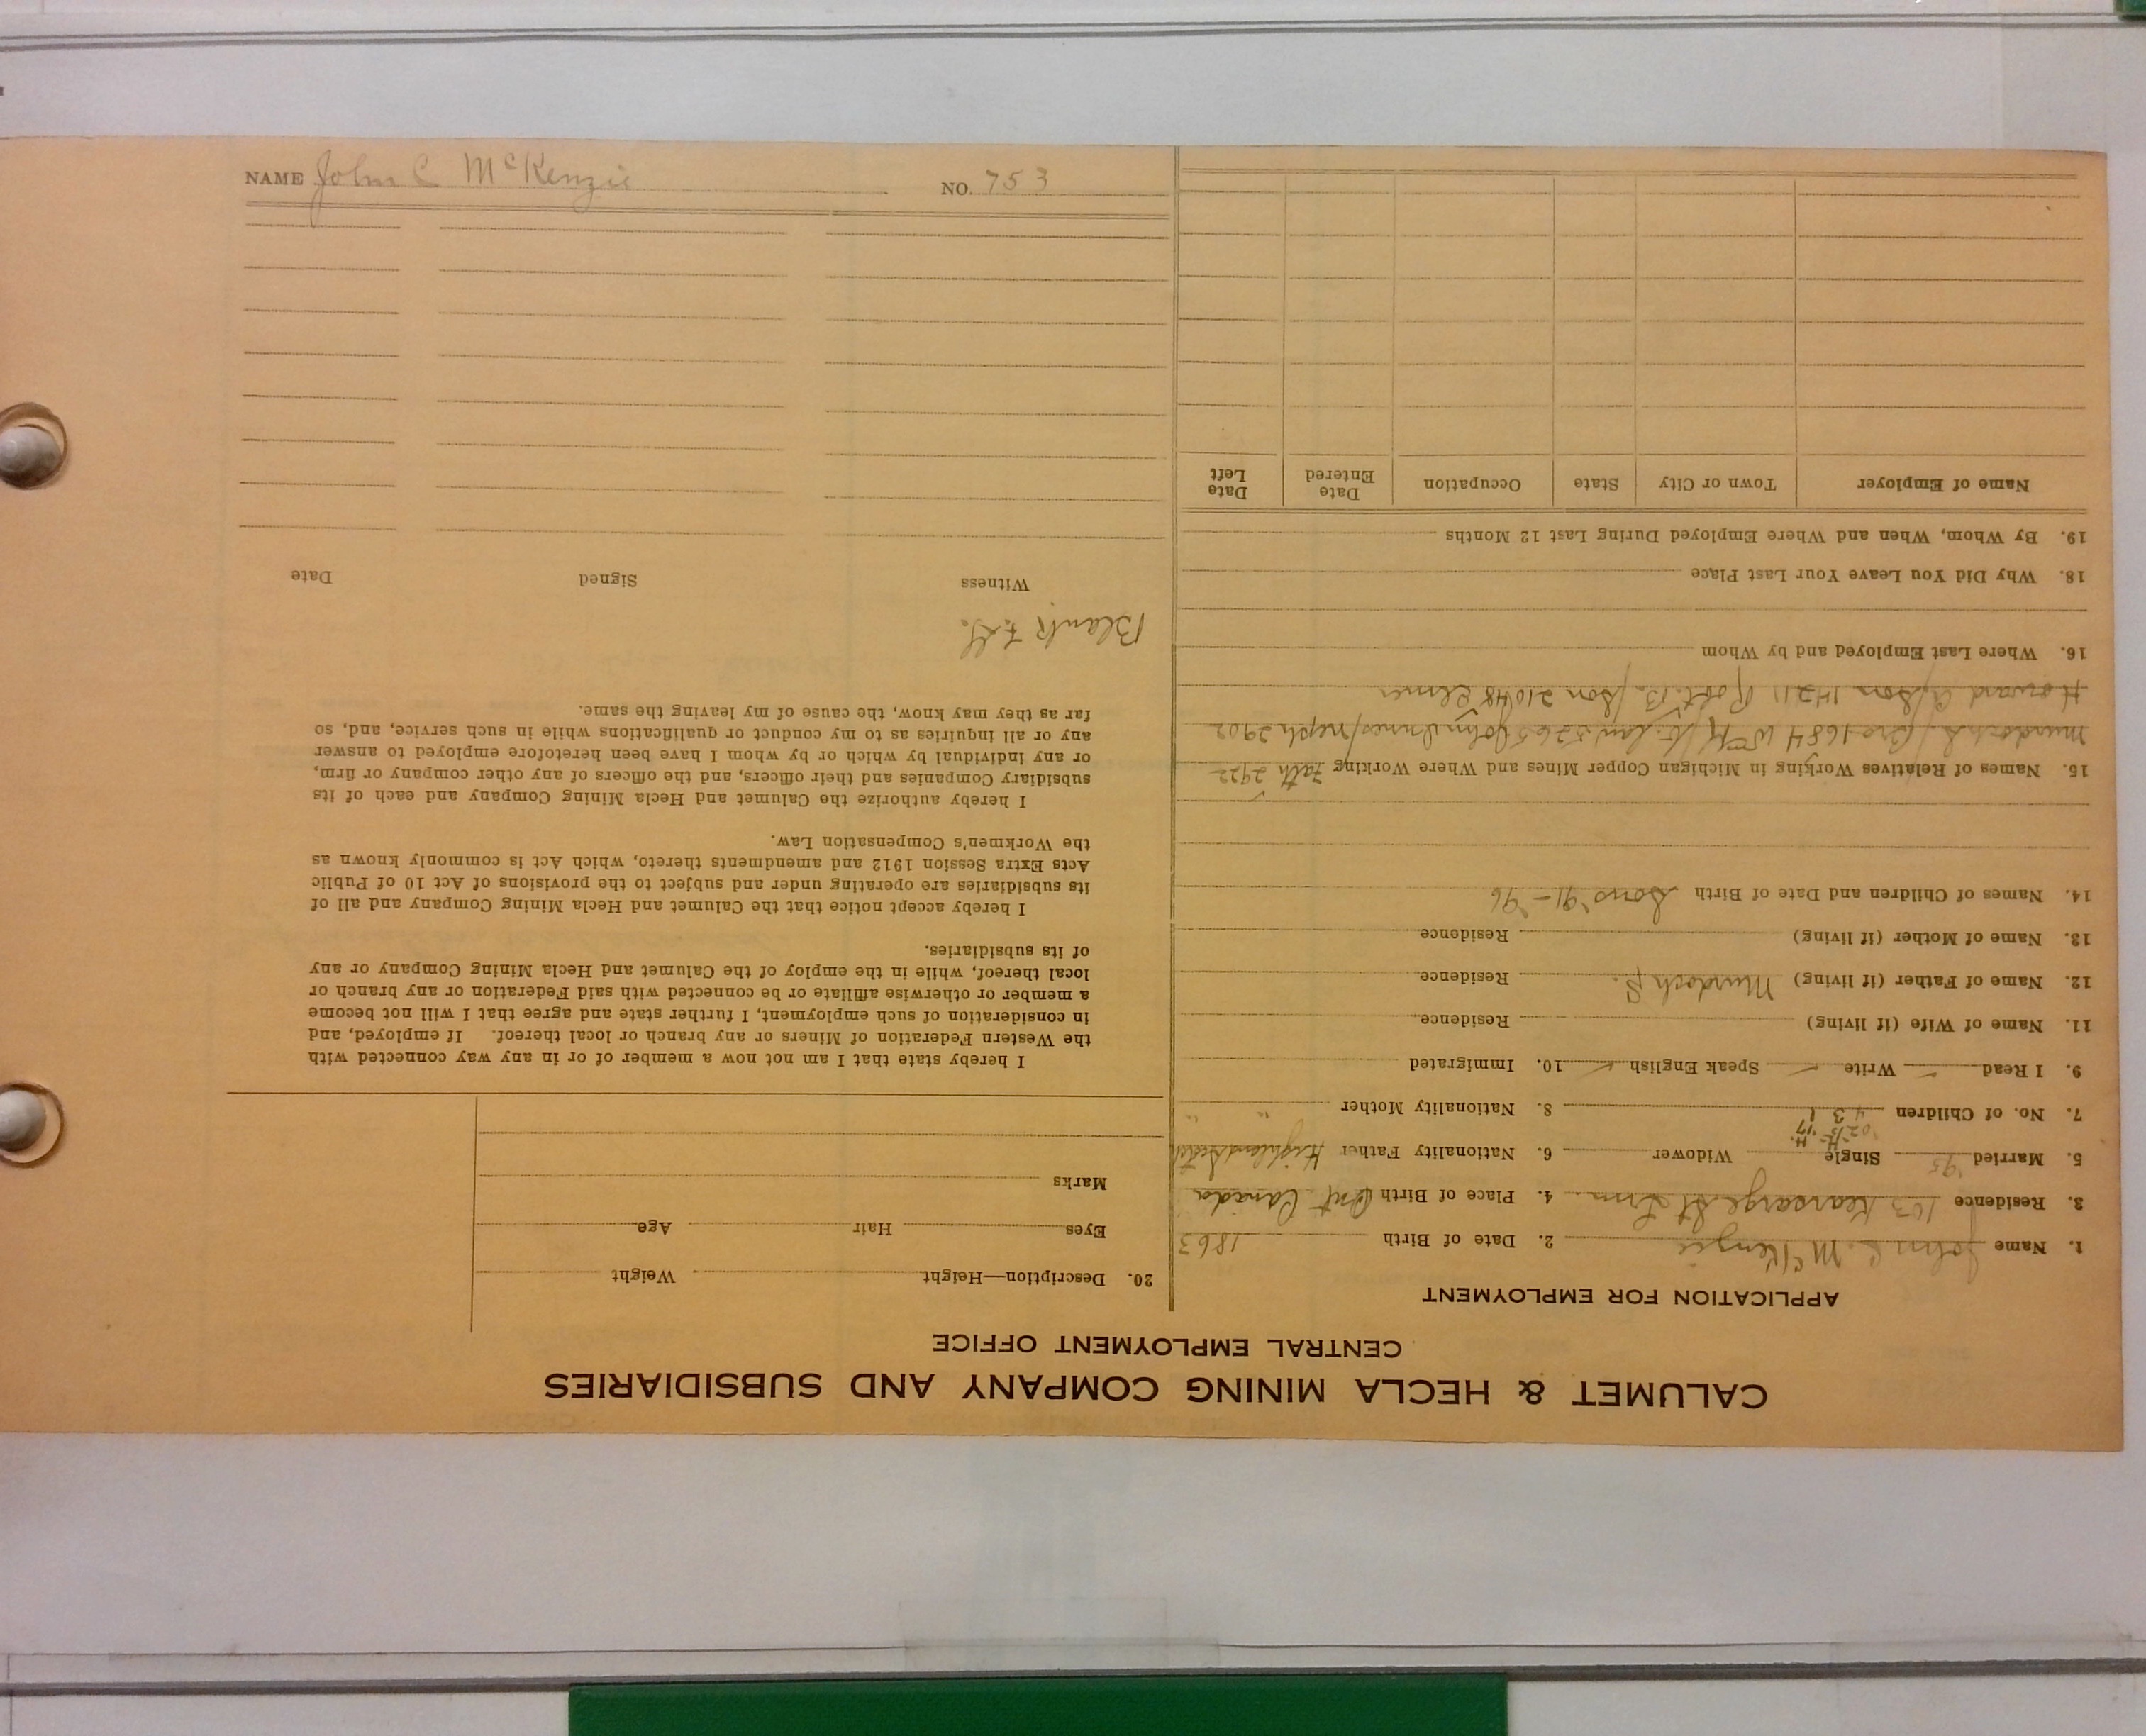 CALUMET & HECLA MINING COMPANY AND SUBSIDIARIES
CENTRAL EMPLOYMENT OFFICE
APPLICATION FOR EMPLOYMENT
1. Name John C. McKenzie 2. Date of Birth 1863
3. Residence 103 Kearsarge St Lrm 4. Place of Birth Ont Canada
5. Married '95 Single Widower 6. Nationality Father Highland Scotch
'02 H. '17 H.
7. No. of Children 4 3 1 8. Nationality Mother " "
9. I Read ✓ Write ✓ Speak English ✓ 10. Immigrated
11. Name of Wife (if living) Residence
12. Name of Father (if living) Murdoch S. Residence
13. Name of Mother (if living) Residence
14. Names of Children and Date of Birth Sons '91 - '96
15. Names of Relatives Working in Michigan Copper Mines and Where Working Fath 2922
Murdoch L/Bro 1684 Wm H/ law 5765 John Innes/neph 2902
Howard A/son 14211 Robt. B./son 21048 Elmer
16. Where Last Employed and by Whom
18. Why Did You Leave Your Last Place
19. By Whom, When and Where Employed During Last 12 Months
Name of Employer Town or City State Occupation Date Entered Date Left
20. Description—Height Weight
Eyes Hair Age
Marks
I hereby state that I am not now a member of or in any way connected with
the Western Federation of Miners or any branch or local thereof. If employed, and
in consideration of such employment, I further state and agree that I will not become
a member or otherwise affiliate or be connected with said Federation or any branch or
local thereof, while in the employ of the Calumet and Hecla Mining Company or any
of its subsidiaries.
I hereby accept notice that the Calumet and Hecla Mining Company and all of
its subsidiaries are operating under and subject to the provisions of Act 10 of Public
Acts Extra Session 1912 and amendments thereto, which Act is commonly known as
the Workmen's Compensation Law.
I hereby authorize the Calumet and Hecla Mining Company and each of its
subsidiary Companies and their officers, and the officers of any other company or firm,
or any individual by which or by whom I have been heretofore employed to answer
any or all inquiries as to my conduct or qualifications while in such service, and, so
far as they may know, the cause of my leaving the same.
Blank
Witness Signed Date
NAME John C McKenzie NO. 753